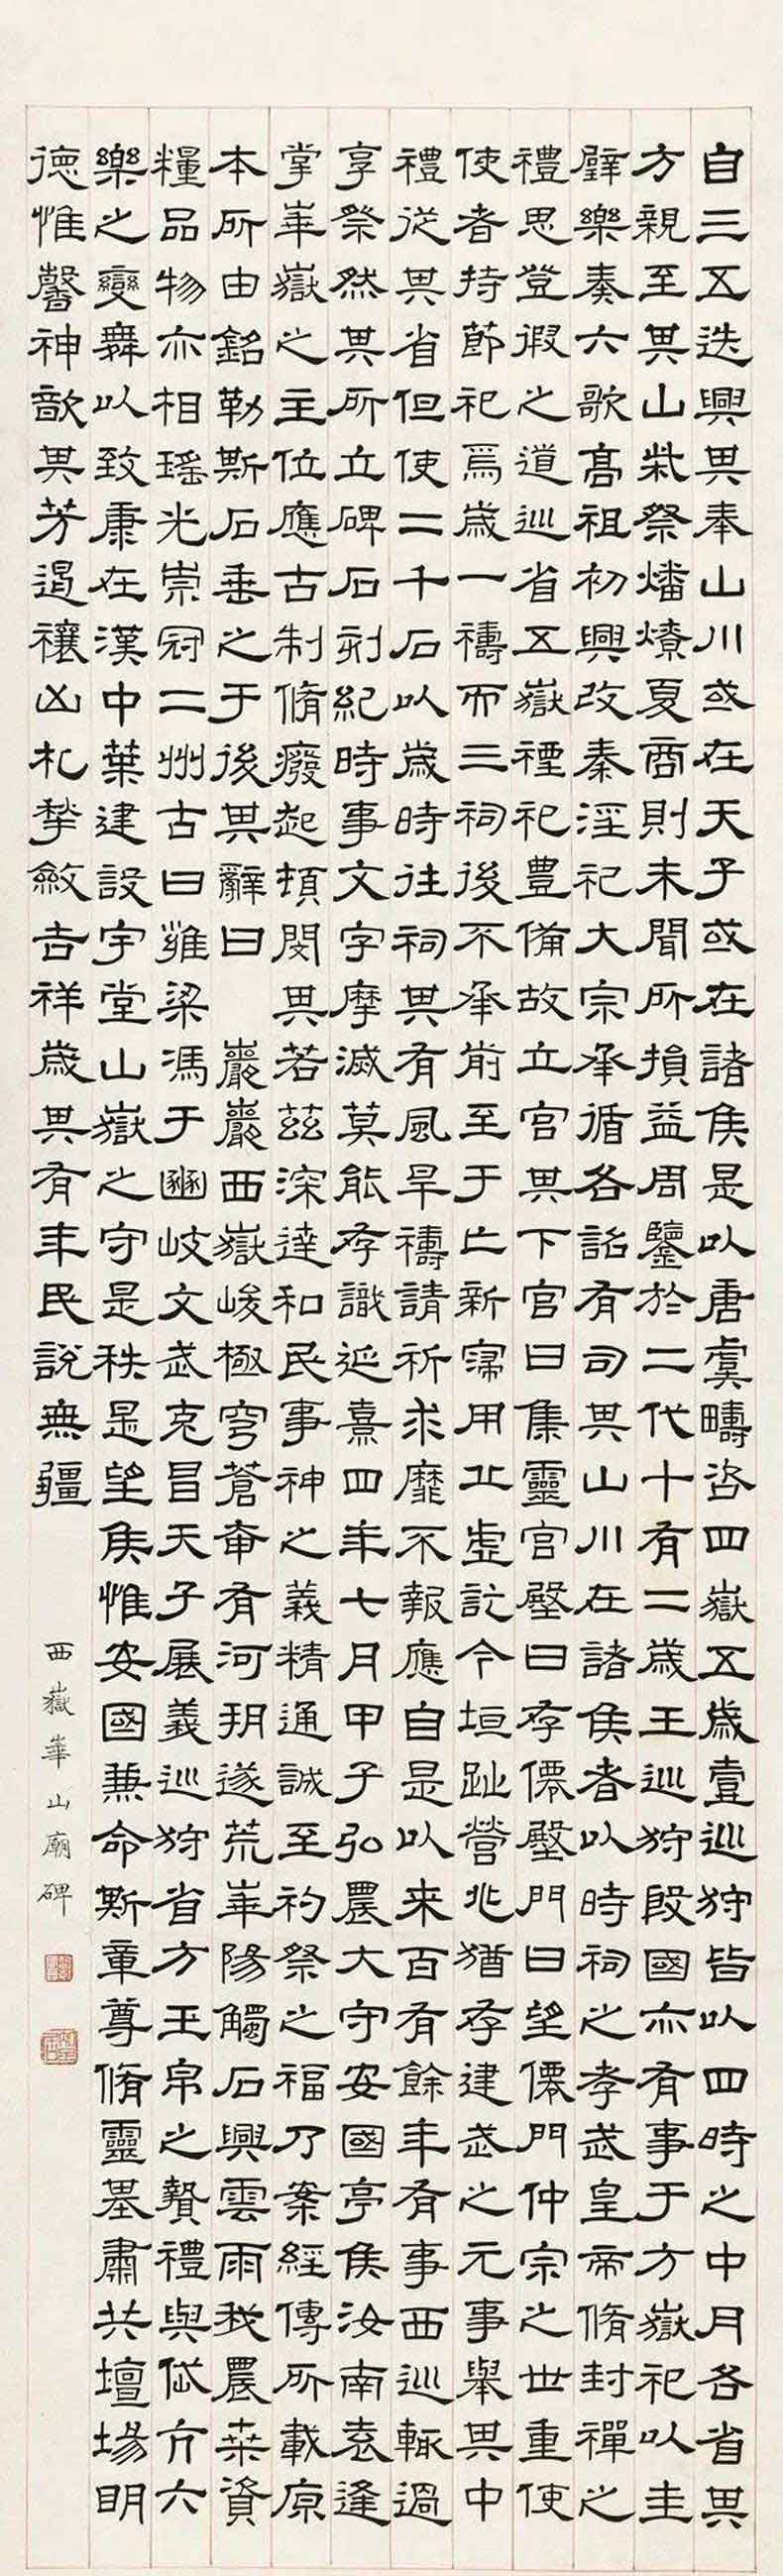 自三五迭興其奉山川或在天子或在諸侯是以唐虞疇咨四嶽五歲壹巡狩皆以四時之中月各省其
方親至其山柴祭燔燎夏商則未聞所損益周鑒於二代十有二歲王巡狩殷國亦有事于方嶽祀以圭
璧樂奏六歌高祖初興改秦淫祀大宗承循各詔有司其山川在諸侯者以時祠之孝武皇帝脩封禪之
禮思登徦之道巡省五嶽禋祀豊備故立宮其下宮曰集靈宮壂曰存僊壂門曰望僊門仲宗之世重使
使者持節祀焉歲一禱而三祠後不承前至于亡新寖用丘虛訖今垣趾營兆猶存建武之元事舉其中
禮從其省但使二千石以歲時往祠其有風旱禱請祈求靡不報應自是以来百有餘年有事西巡輒過
享祭然其所立碑石刻紀時事文字摩滅莫能存識延熹四年七月甲子弘農大守安國亭侯汝南袁逢
掌崋嶽之主位應古制脩廢起頓閔其若茲深達和民事神之義精通誠至礿祭之福乃案經傳所載原
本所由銘勒斯石垂之于後其辭曰 巖巖西嶽峻極穹蒼奄有河朔遂荒崋陽觸石興雲雨我農桑資
糧品物亦相瑤光崇冠二州古曰雍梁馮于豳岐文武克昌天子展義巡狩省方玉帛之贄禮與岱亢六
樂之變舞以致康在漢中葉建設宇堂山嶽之守是秩是望侯惟安國兼命斯章尊脩靈基肅共壇場明
德惟馨神歆其芳遏禳凶札揫斂吉祥歲其有年民說無疆
西嶽崋山廟碑